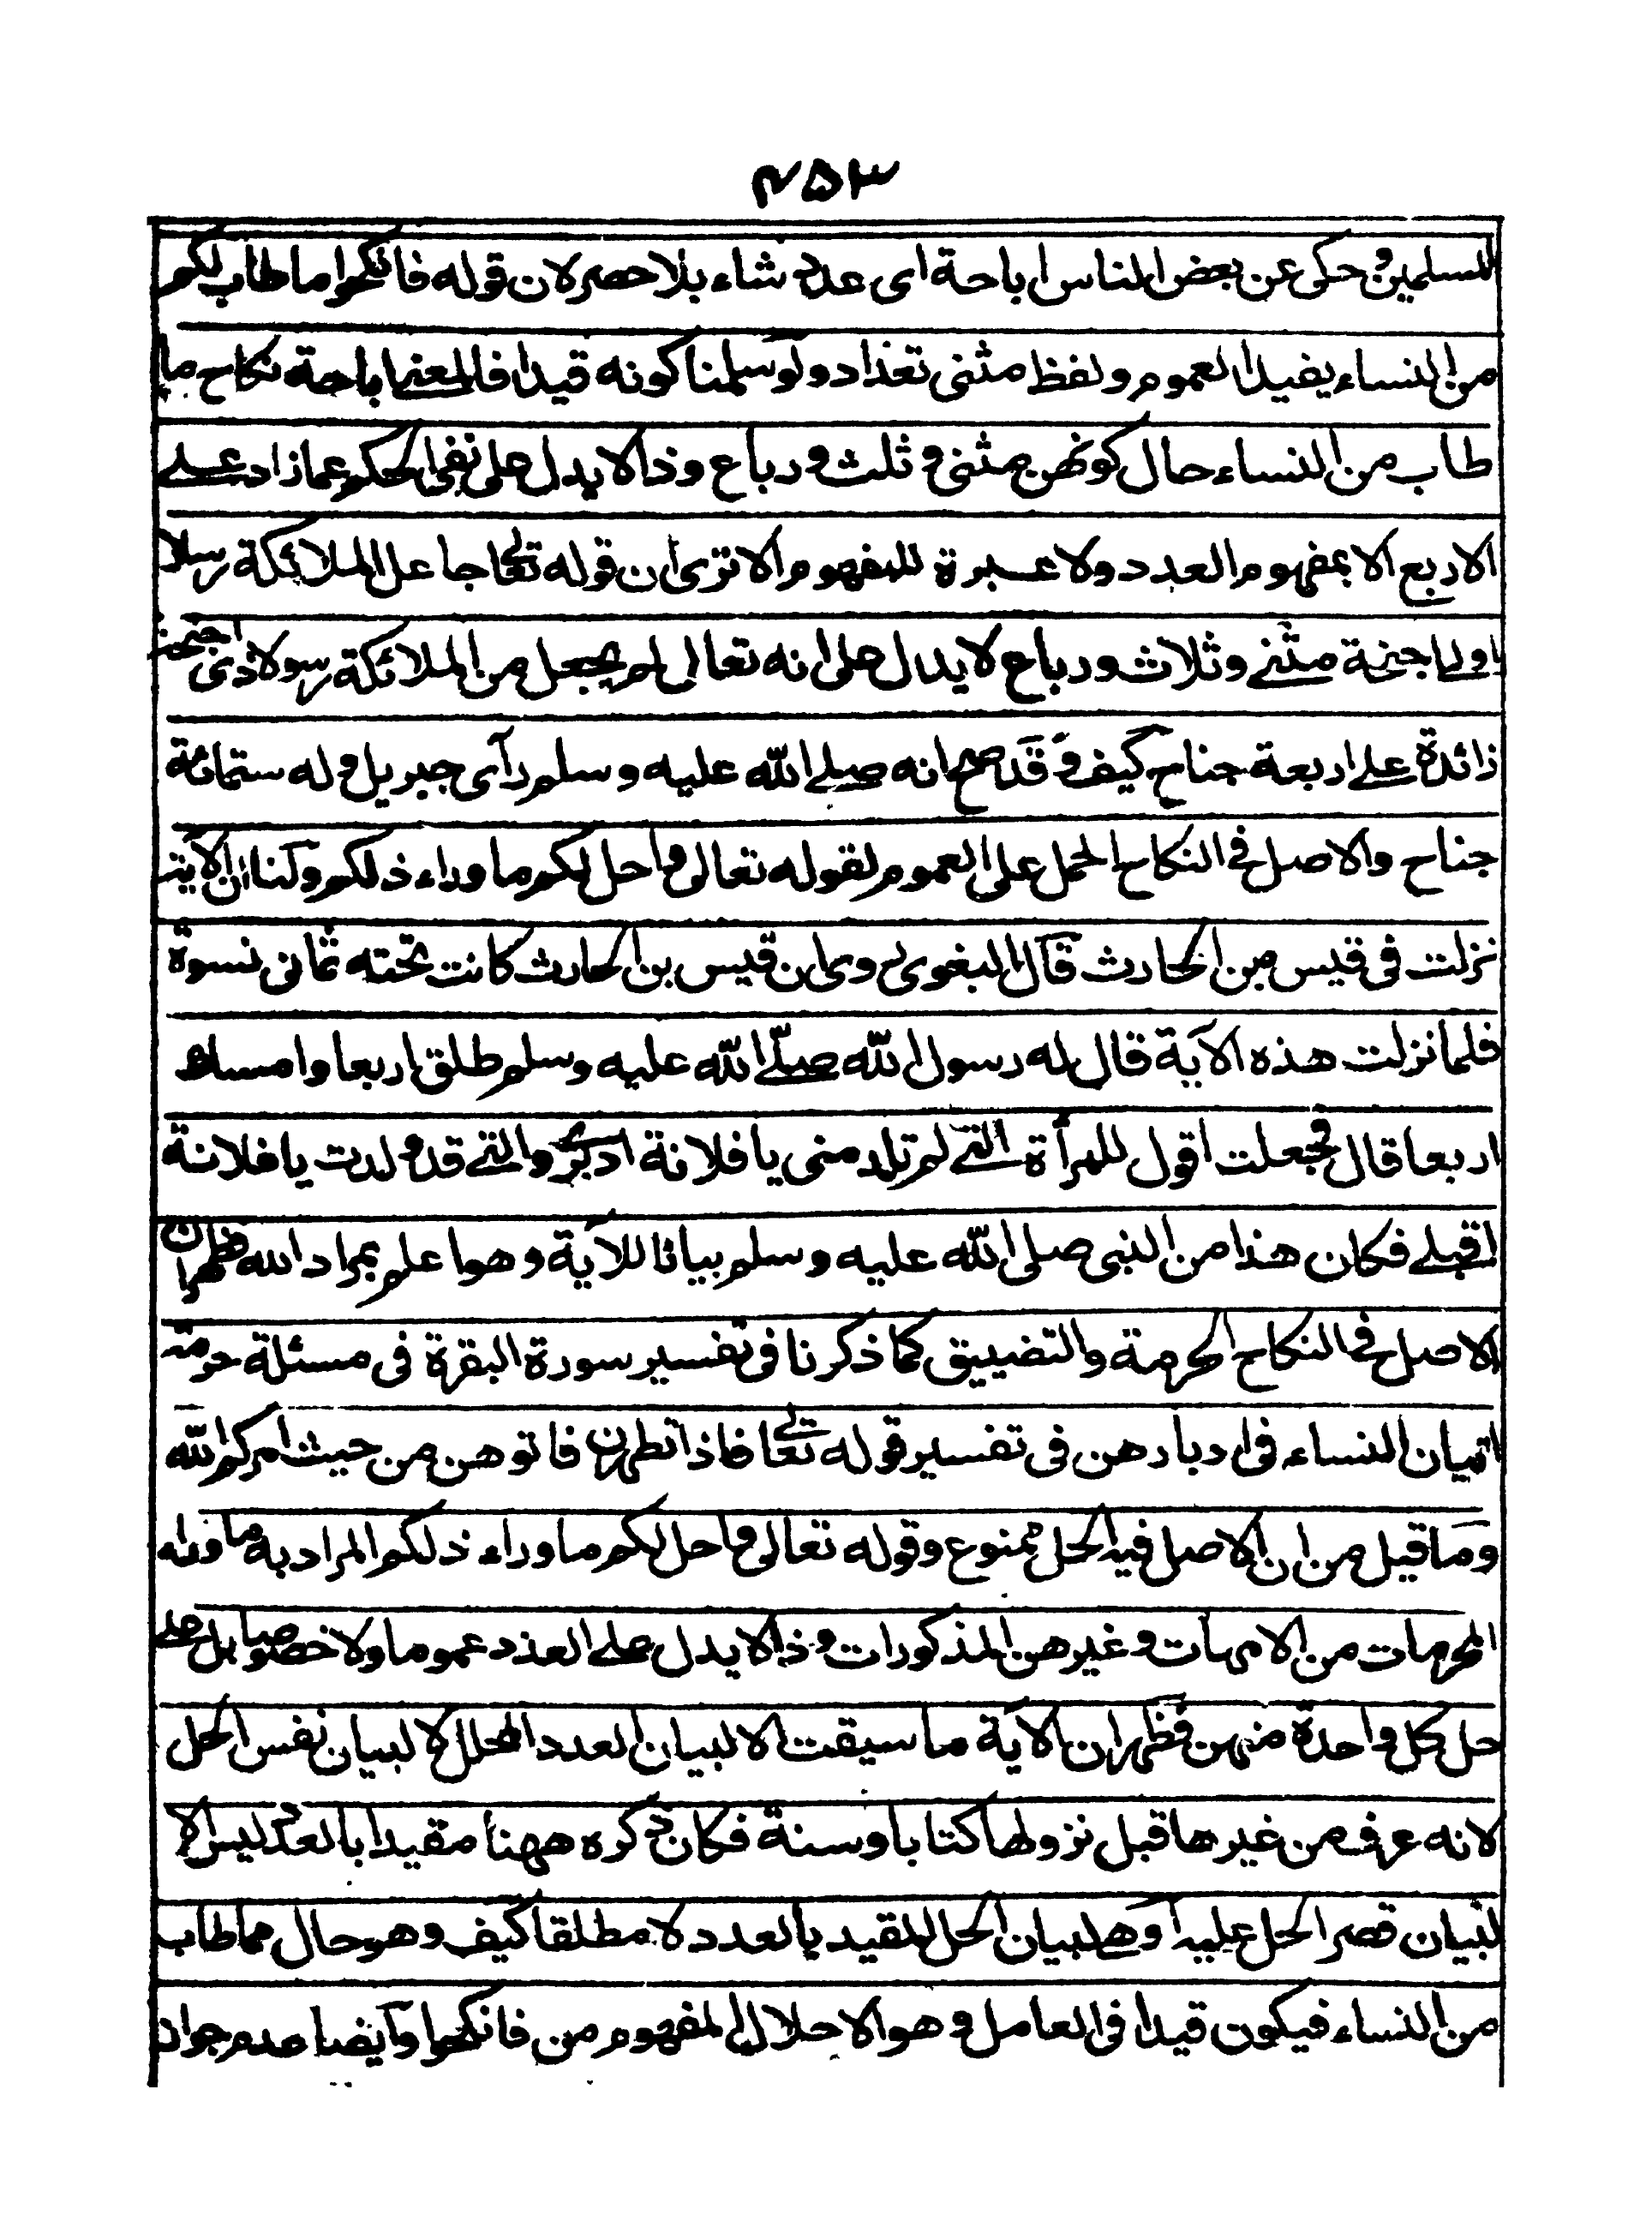 ۴۵۳
المسلمين وحكى عن بعض الناس اباحة اى عدد شاء بلا حصر لان قوله فانكحوا ما طاب لكم
من النساء يفيد العموم ولفظ مثنى تعداد ولو سلمنا كونه قيدا فالمعنى اباحة نكاح ما
طاب من النساء حال كونهن مثنى وثلث ورباع وذا لا يدل على نفى الحكم عما زاد على
الاربع الا بمفهوم العدد ولا عبرة للمفهوم الا ترى ان قوله تعالى جاعل الملائكة رسلا
اولى اجنحة مثنى وثلاث ورباع لا يدل على انه تعالى لم يجعل من الملائكة رسولا ذى اجنحة
زائدة على اربعة جناح كيف وقد صح انه صلى الله عليه وسلم رآى جبريل وله ستمائة
جناح والاصل فى النكاح الحمل على العموم لقوله تعالى واحل لكم ما وراء ذلكم ولنا ان الآية
نزلت فى قيس بن الحارث قال البغوى روى ان قيس بن الحارث كانت تحته ثمانى نسوة
فلما نزلت هذه الآية قال له رسول الله صلى الله عليه وسلم طلق اربعا وامسك
اربعا قال فجعلت اقول للمرأة التى لم تلد منى يا فلانة ادبرى والتى قد ولدت يا فلانة
اقبلى فكان هذا من النبى صلى الله عليه وسلم بيانا للآية وهو اعلم بمراد الله فظهر ان
الاصل فى النكاح الحرمة والتضييق كما ذكرنا فى تفسير سورة البقرة فى مسئلة حرمة
اتيان النساء فى ادبارهن فى تفسير قوله تعالى فاذا تطهرن فاتوهن من حيث امركم الله
وما قيل من ان الاصل فيه الحل ممنوع وقوله تعالى واحل لكم ما وراء ذلكم المراد به ما وراء
المحرمات من الامهات وغيرهن المذكورات وذا لا يدل على العدد عموما ولا خصوصا بل على
حل كل واحدة منهن فظهر ان الآية ما سيقت الا لبيان العدد المحلل لا لبيان نفس الحل
لانه عرف من غيرها قبل نزولها كتابا وسنة فكان ذكره ههنا مقيدا بالعدد ليس الا
لبيان قصر الحل عليه او هى لبيان الحل المقيد بالعدد لا مطلقا كيف وهو حال مما طاب
من النساء فيكون قيدا فى العامل وهو الاحلال المفهوم من فانكحوا وايضا عدم جواز